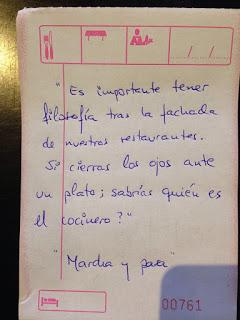 / /
"Es importante tener
filosofía tras la fachada
de nuestros restaurantes.
Si cierras los ojos ante
un plato; sabrías quién es
el cocinero?"
"Marcha y pasa"
00761